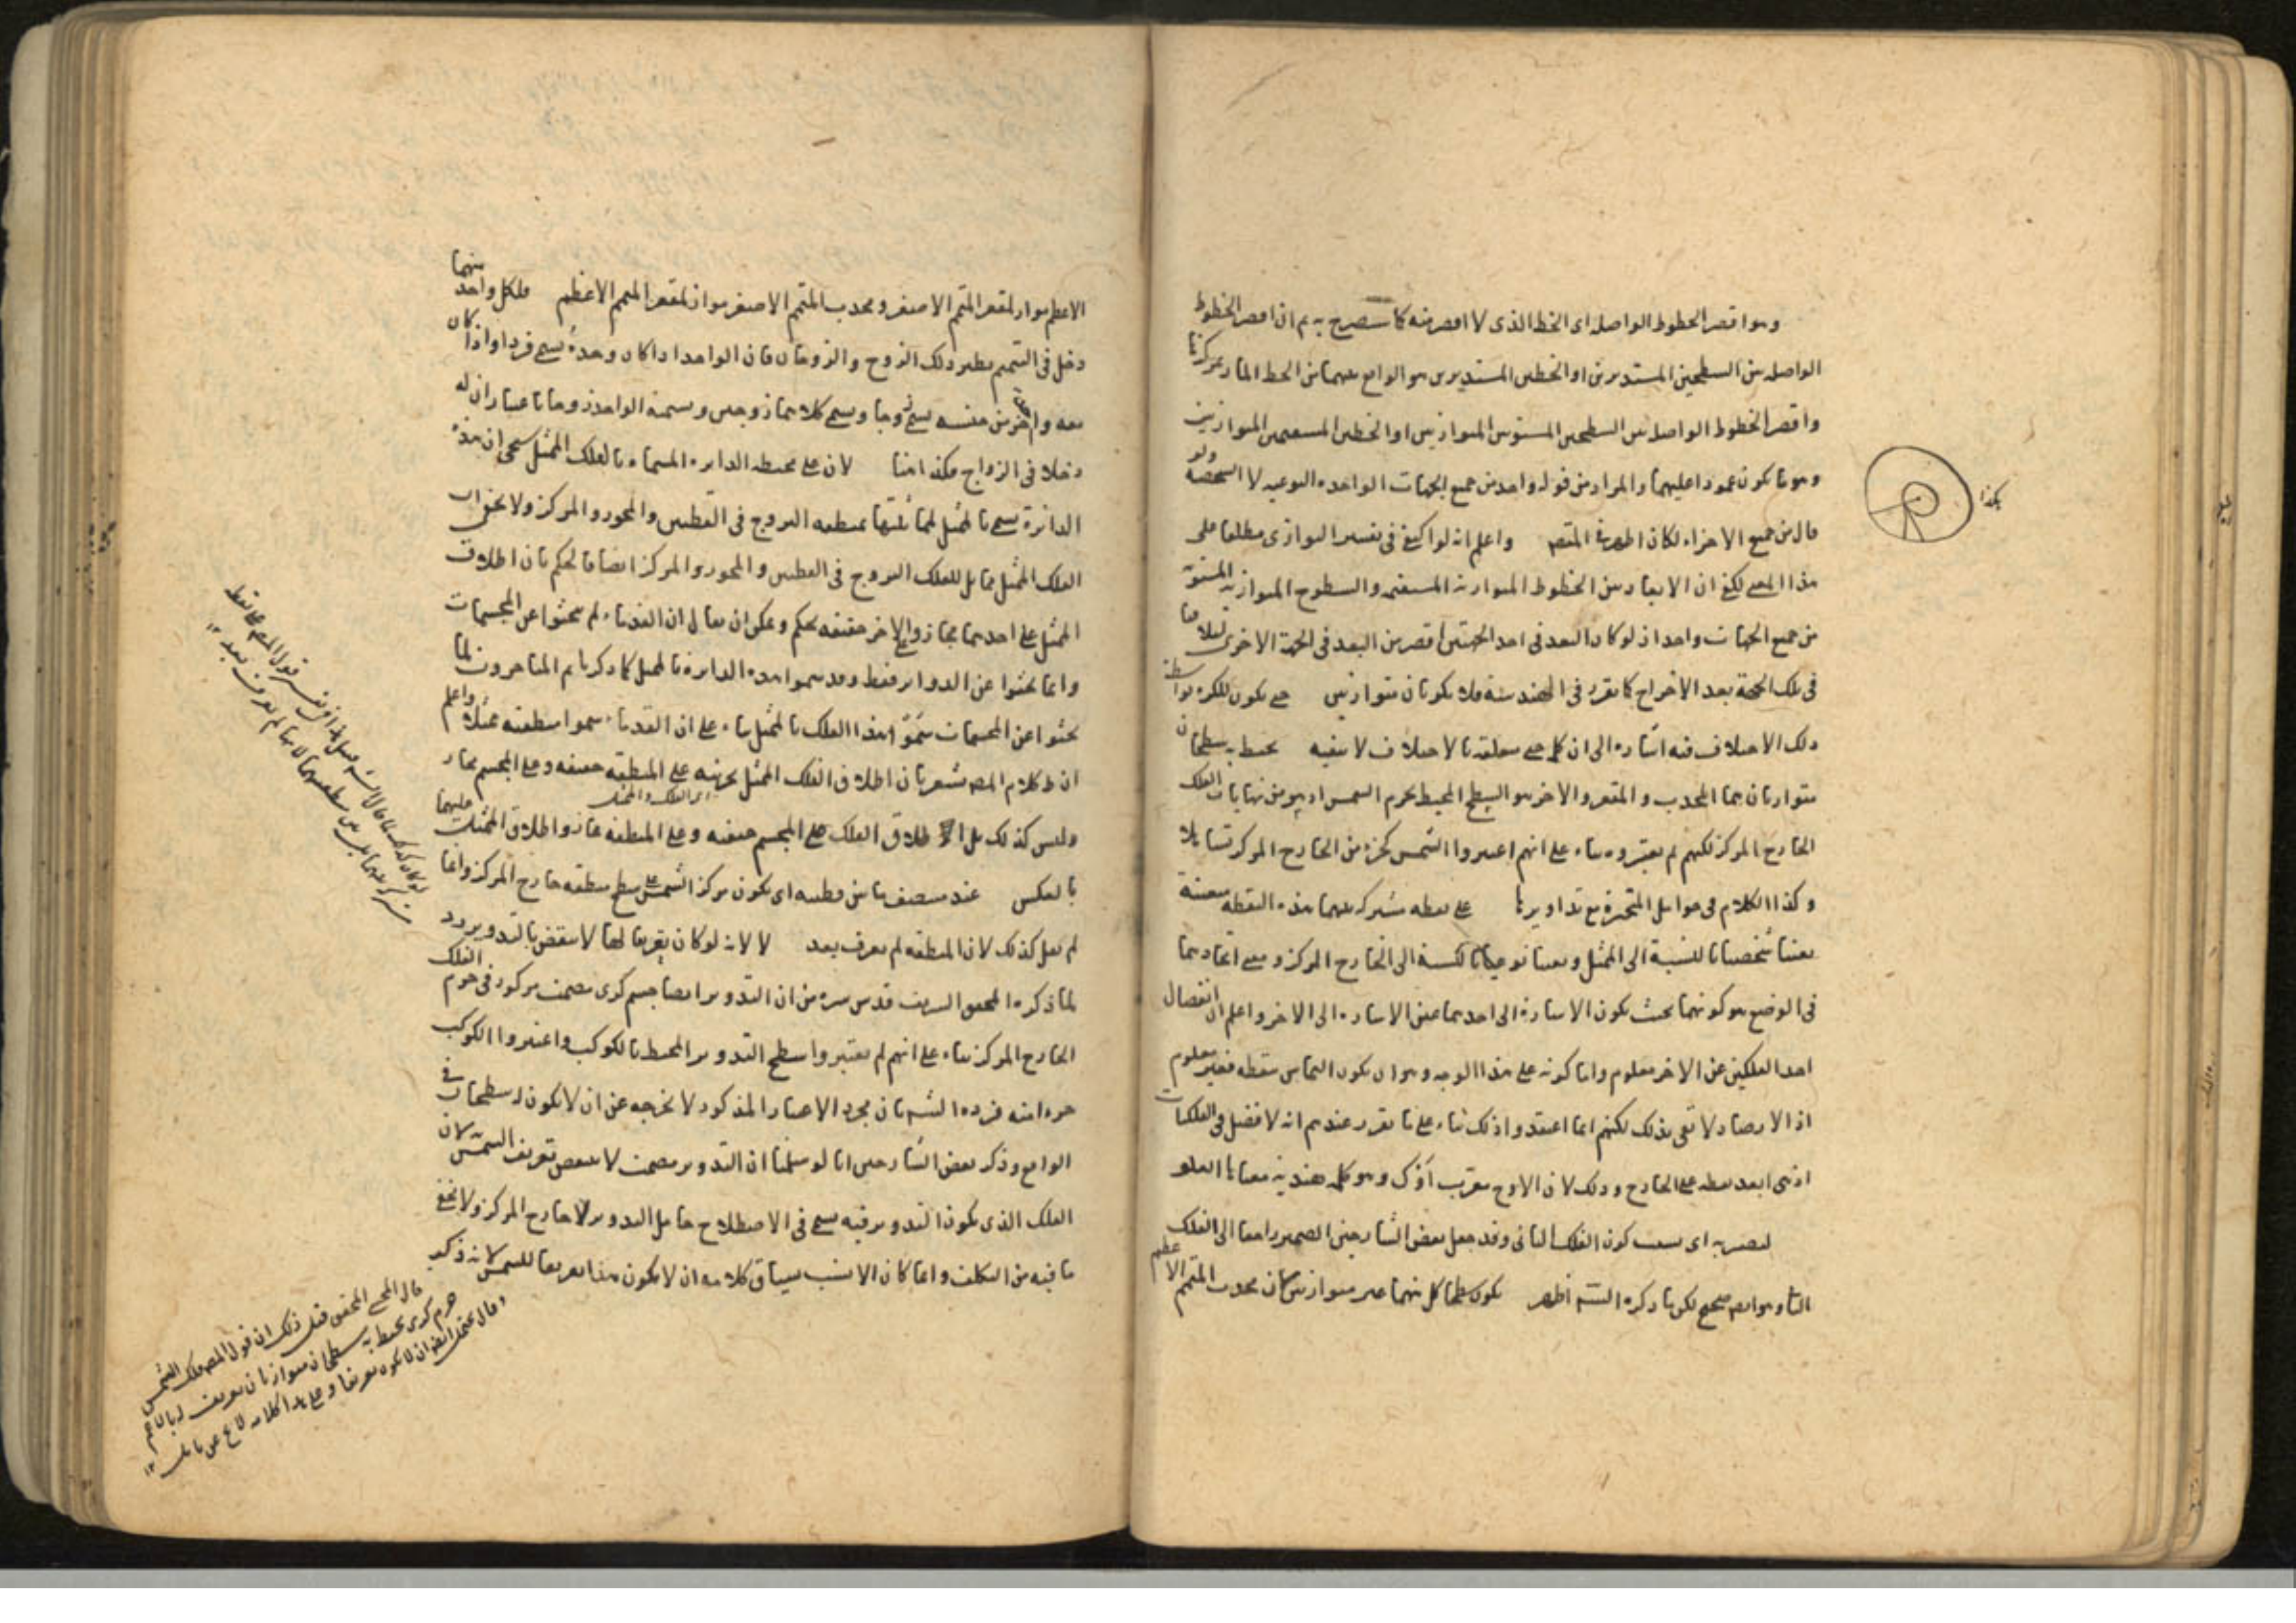 وهو اقصر الخطوط الواصله اى الخط الذى لا اقصر منه كما سيصرح به ثم ان اقصر الخطوط
الواصله بين السطحين المستديرين او الخطين المستديرين هو الواقع بينهما من الخط المار بمركزيهما
واقصر الخطوط الواصله بين السطحين المستويين المتوازيين او الخطين المستقيمين المتوازيين
وهو ما يكون عمودا عليهما والمراد من قوله واحد من جميع الجهات الواحده النوعيه لا الشخصية ولو
قال من جميع الاجزاء لكان اظهر فى المقصود واعلم انه لو اكتفى فى تفسير التوازى مطلقا على
هذا المعنى لكفى ان الابعاد بين الخطوط المتوازية المستقيمة والسطوح المتوازية المستوية
من جميع الجهات واحد اذ لو كان البعد فى احد الجهتين اقصر من البعد فى الجهة الاخرى لتلاقيا
فى تلك الجهة بعد الاخراج كما تقرر فى الهندسة فلا يكونان متوازيين حتى يكون للكره بواسطة
ذلك الاختلاف فيه اشاره الى ان كلمة حتى متعلقة بالاختلاف لا بنفيه يحيط به سطحان
متوازيان هما المحدب والمقعر والاخر هو السطح المحيط بجرم الشمس اذ هو من نهايات الفلك
الخارج المركز لكنهم لم يعتبروه بناء على انهم اعتبروا الشمس كجزء من الخارج المركز تساهلا
وكذا الكلام فى حوامل المتحيرة مع تداويرها على نقطه مشتركه بينهما هذه النقطه معينة
تعينا شخصيا بالنسبة الى الممثل وتعينا نوعيا بالنسبة الى الخارج المركز ومعنى اتحادهما
فى الوضع هو كونهما بحيث يكون الاشارة الى احدهما عين الاشاره الى الاخر واعلم ان انفصال
احد الفلكين عن الاخر معلوم واما كونه على هذا الوجه وهو ان يكون التماس بنقطه فغير معلوم
اذ الارصاد لا تفى بذلك لكنهم انما اعتقدوا ذلك بناء على ما تقرر عندهم انه لا فضل فى الفلكيات
اذ هى ابعد نقطه على الخارج وذلك لان الاوج معرب اوك وهو كلمه هنديه معناها العلو
ليصير به اى بسبب كون الفلك الثانى وقد جعل بعض الشارحين الضمير راجعا الى الفلك
الثانى وهو ايضا صحيح لكن ما ذكره الشارح اظهر يكون سطحا كل منهما غير متوازيين كان محدب المتمم الاعظم
هكذا
الاعظم مواز لمقعر المتمم الاصغر ومحدب المتمم الاصغر مواز لمقعر المتمم الاعظم فلكل واحد منهما
دخل فى التتميم نظير ذلك الزوج والزوجان فان الواحد اذا كان وحده يسمى فردا واذا كان
معه واحد اخر من جنسه يسمى زوجا ويسمى كلاهما زوجين ويسمى الواحد زوجا باعتبار ان له
دخلا فى الزواج هكذا هنا لان على محيطه الدايره المسماه بالفلك الممثل يعنى ان هذه
الدائرة يسمى بالممثل لمماثلتها لمنطقه البروج فى القطبين والمحور والمركز ولا يخفى ان
الفلك الممثل مماثل للفلك البروج فى القطبين والمحور والمركز ايضا فالحكم بان اطلاق
الممثل على احدهما مجاز وعلى الاخر حقيقه تحكم ويمكن ان يقال ان القدماء لم يبحثوا عن المجسمات
وانما بحثوا عن الدواير فقط وقد سموا هذه الدايرة بالممثل كما ذكرنا ثم المتاخرون لما
بحثوا عن المجسمات سموا هذا الفلك بالممثل بناء على ان القدماء سموا منطقته ممثلا واعلم
ان ظاهر كلام المص مشعر بان اطلاق الفلك الممثل بجزئيه على المنطقه حقيقه وعلى المجسم مجاز
وليس كذلك بل اطلاق الفلك على المجسم حقيقه وعلى المنطقه مجاز واطلاق الممثل عليهما
بالعكس عند منتصف ما بين قطبيه اى يكون مركز الشمس على سطح منطقه خارج المركز وانما
لم يقل كذلك لان المنطقه لم يعرف بعد لا لانه لو كان تعريفا لها لانتقض بالتدوير
لما ذكره المحقق الشريف قدس سره من ان التدوير ايضا جسم كرى مصمت مركوز فى جرم الفلك
الخارج المركز بناء على انهم لم يعتبروا سطح التدوير المحيط بالكوكب واعتبروا الكوكب
جزءا منه فرده الشارح بان مجرد الاعتبار المذكور لا يخرجه عن ان لا يكون له سطحان فى
الواقع وذكر بعض الشارحين انا لو سلمنا ان التدوير مصمت لا ينتقض تعريف الشمس لان
الفلك الذى يكون التدوير فيه يسمى فى الاصطلاح حامل التدوير لا خارج المركز ولا يخفى
ما فيه من التكلف وانما كان الانسب بسياق كلامه ان لا يكون هذا تعريفا للشمس لانه ذكر
قال المحشى المحقق قبل ذلك ان قول المص وفلك الشمس
جرم كرى يحيط به سطحان متوازيان تعريف